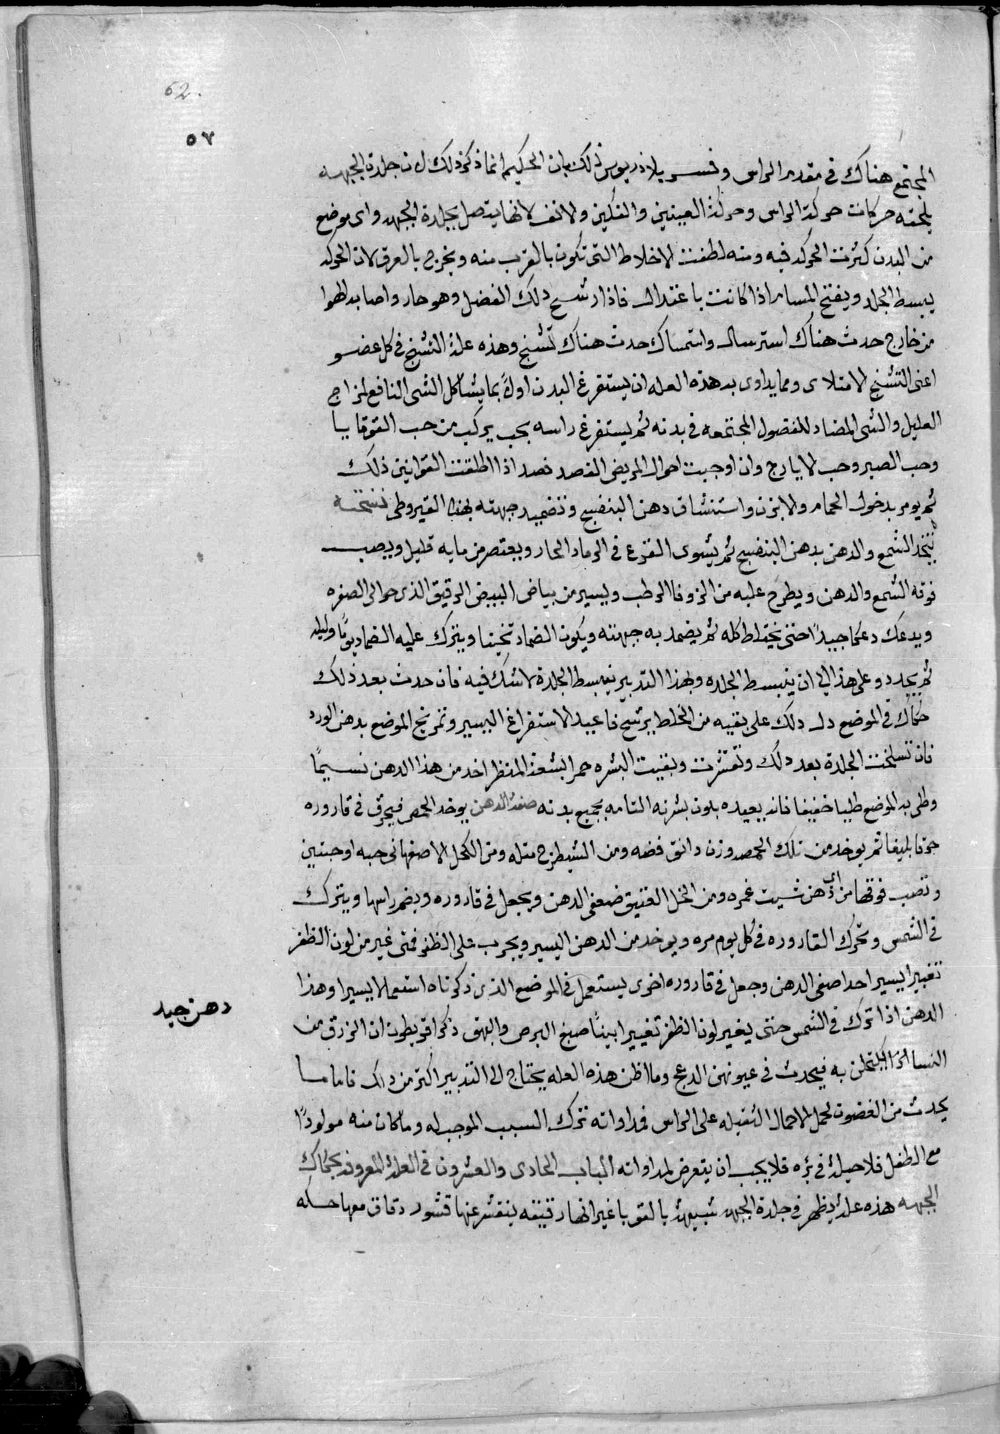 62.
٥٧
المجتمع هناك في مقدم الراس وفسر بلاذريوس ذلك بان الحكيم انما ذكر ذلك لان جلدة الجبهه
يلحقه حركات حركة الراس وحركة العينين والفكين والانف لانها يتصل بجلدة الجبهه واي موضع
من البدن كثرت الحركه فيه ومنه لطفت الاخلاط التي تكون بالقرب منه ويخرج بالعرق لان الحركه
يبسط الجلد ويفتح المسام اذا كانت باعتدال فاذا رشح ذلك الفضل وهو حار واصابه الهوا
من خارج حدث هناك استرسال واستمساك حدث هناك تشنج وهذه علة التشنج في كل عضو
اعني التشنج الامتلاى ومما يداوى به هذه العله ان يستفرغ البدن اولاً بما يشاكل الشي النافع لمزاج
العليل والشي المضاد للفضول المجتمعه في بدنه ثم يستفرغ راسه بحب يركب من حب القوقايا
وحب الصبر وحب الايارج وان اوجبت احوال المريض الفصد فصد اذا اطلقت القوانين ذلك
ثم يومر بدخول الحمام والابزن واستنشاق دهن البنفسج وتضميد جبهته بهذا القيروطى نسخته
يتخذ الشمع والدهن بدهن البنفسج ثم يشوى القرع في الرماد الحار ويعتصر من مايه قليل ويصب
فوقه الشمع والدهن ويطرح عليه من الزوفا الرطب ويسير من بياض البيض الرقيق الذى حوالى الصفره
ويدعك دعكا جيداً حتى يختلط كله ثم يضمد به جبهته ويكون الضماد ثخينا ويترك عليه الضماد يوماً وليله
ثم يجدد وعلى هذا الى ان ينبسط الجلده وبهذا التدبير ينبسط الجلدة لا شك فيه فان حدث بعد ذلك
حكاك في الموضع دل ذلك على بقيه من الخلط يرشح فاعيد الاستفراغ اليسير وتمرنج الموضع بدهن الورد
فان تسلخت الجلدة بعد ذلك وتقشرت وبقيت البشره حمرا بشعة المنظر اخذ من هذا الدهن نسيماً
وطلى به الموضع طليا خفيفا فانه يعيده بلون بشرته التامه بجميع بدنه صفة الدهن يوخذ الحمص فيحرق في قاروره
حرقا بليغا ثم يوخذ من تلك الحمصه وزن دانق فضه ومن الشيطرج مثله ومن الكحل الاصفهاني حبه او حبتين
وتصب فوقها من اى دهن شيت غمره ومن الخل العتيق ضعفي الدهن ويجعل في قاروره ويضم راسها ويترك
في الشمس وتحرك القاروره في كل يوم مره ويوخذ من الدهن اليسير ويجرب على الظفر فمتى غير من لون الظفر
تغييرا يسيرا احدا صفي الدهن وجعل في قاروره اخرى يستعمل في الموضع الذى ذكرناه استعمالا يسيرا وهذا
الدهن اذا ترك في الشمس حتى يغير لون الظفر تغييرا بيناً صبغ البرص والبهق ذكر اقريطون ان الزرق من
النسا اذا اكتحلن به فيحدث في عيونهن الدعج وما اظن هذه العله يحتاج الى التدبير اكثر من ذلك فاما ما
يحدث من الغضون لحمل الاحمال الثقيله على الراس فمداواته ترك السبب الموجب له وما كان منه مولوداً
مع الطفل فلا حيلة في برء فلا يجب ان يتعرض لمداواته الباب الحادى والعشرون في العلة المعروفه بحكاك
الجبهه هذه علة يظهر في جلدة الجبهه شبيهة بالقوبا غير انها رقيقه يتقشر عنها قشور دقاق معها حكه
دهن جيد